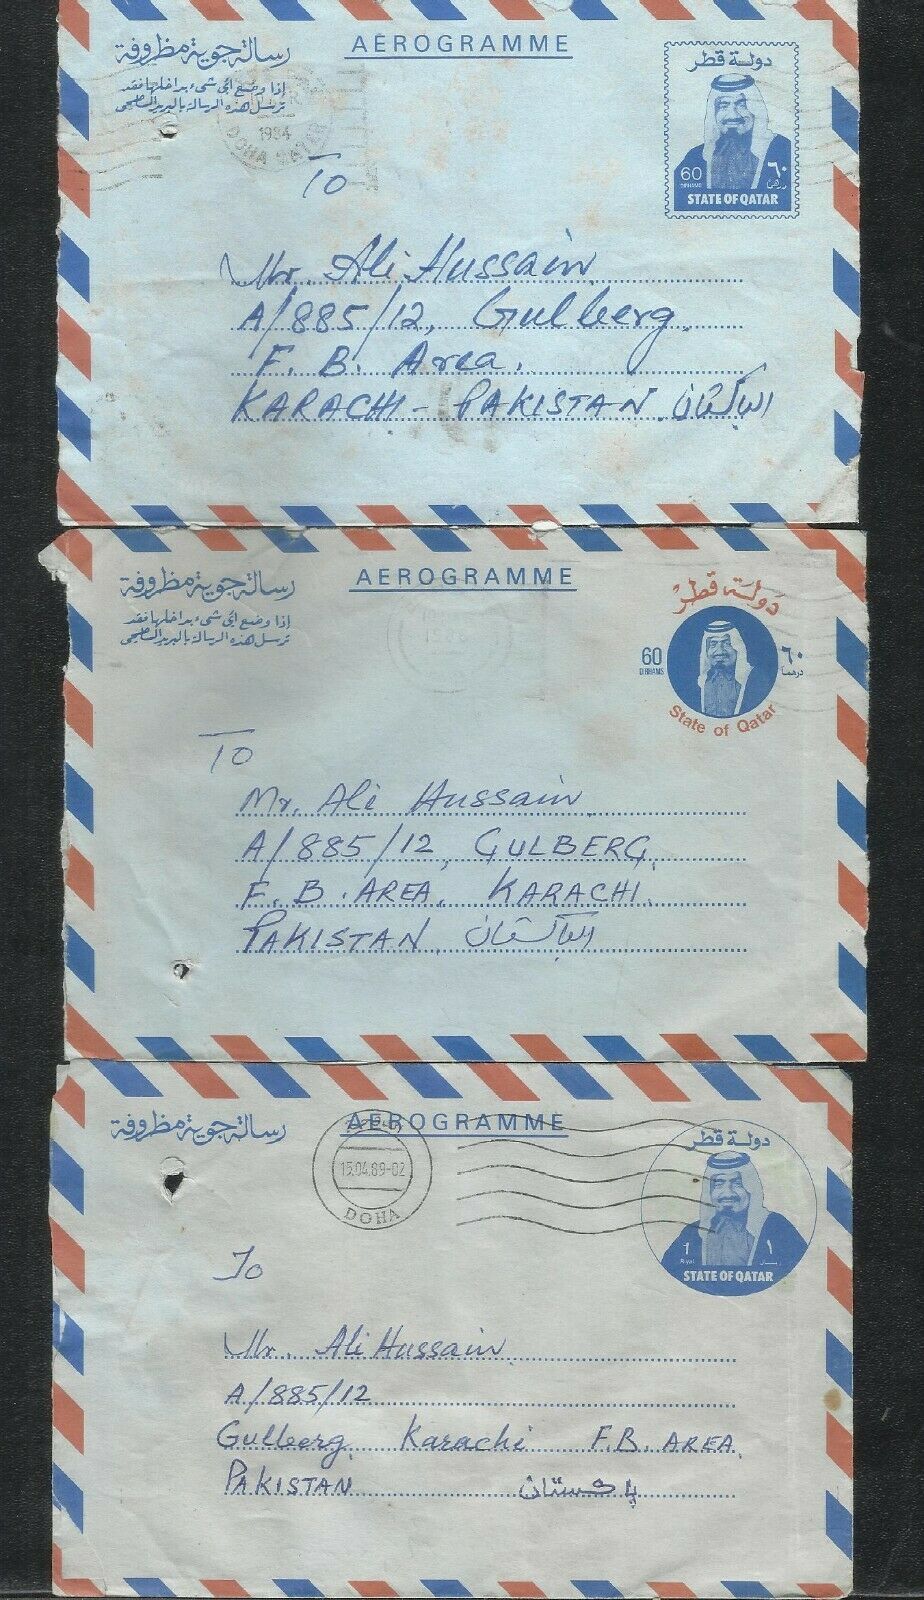 رسالة جوية مظروفة
AEROGRAMME
إذا وضع أي شيء بداخلها فقد
ترسل هذه الرسالة بالبريد السطحي
1984
DOHA QATAR
دولة قطر
60
DIRHAMS
٦٠
درهما
STATE OF QATAR
TO
Mr. Ali Hussain
A/885/12, Gulberg.
F. B. Area.
KARACHI - PAKISTAN الباكستان
رسالة جوية مظروفة
AEROGRAMME
إذا وضع أي شيء بداخلها فقد
ترسل هذه الرسالة بالبريد السطحي
دولة قطر
60
DIRHAMS
٦٠
درهما
State of Qatar
TO
Mr. Ali Hussain
A/885/12, GULBERG.
F. B. AREA, KARACHI.
PAKISTAN. الباكستان
رسالة جوية مظروفة
AEROGRAMME
15.04.89-02
DOHA
دولة قطر
1
Riyal
١
ريال
STATE OF QATAR
To
Mr. Ali Hussain
A/885/12
Gulberg Karachi F.B. AREA
PAKISTAN پاکستان